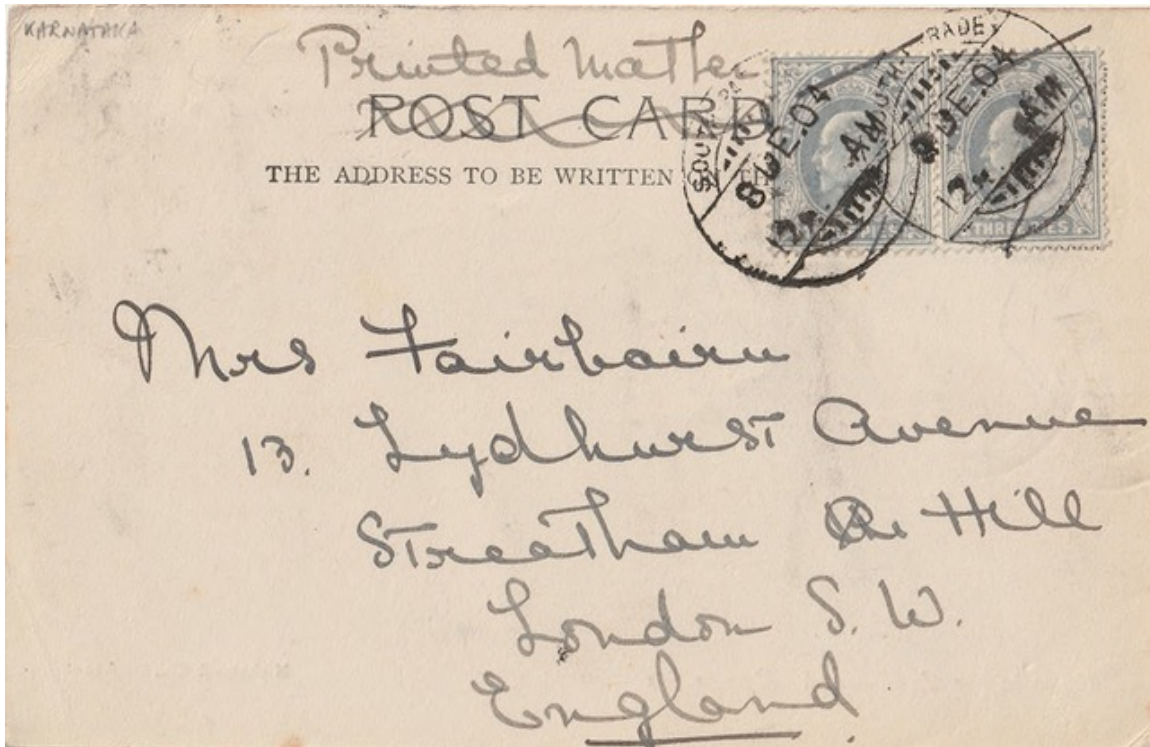 KARNATAKA
Printed Matter
POST CARD
THE ADDRESS TO BE WRITTEN ON TH
SOUTH PARADE
SOUTH PARADE
8 DE. 04
12 AM
8 DE. 04
12 AM
THREE PIES
Mrs Fairbairn
13. Lydhurst Avenue
Streatham Hill
London S. W.
England